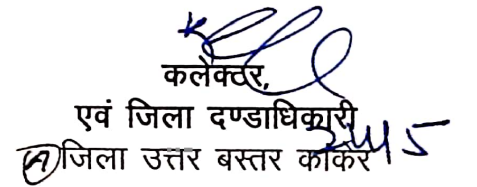 कलेक्टर,
एवं जिला दण्डाधिकारी
जिला उत्तर बस्तर कांकेर